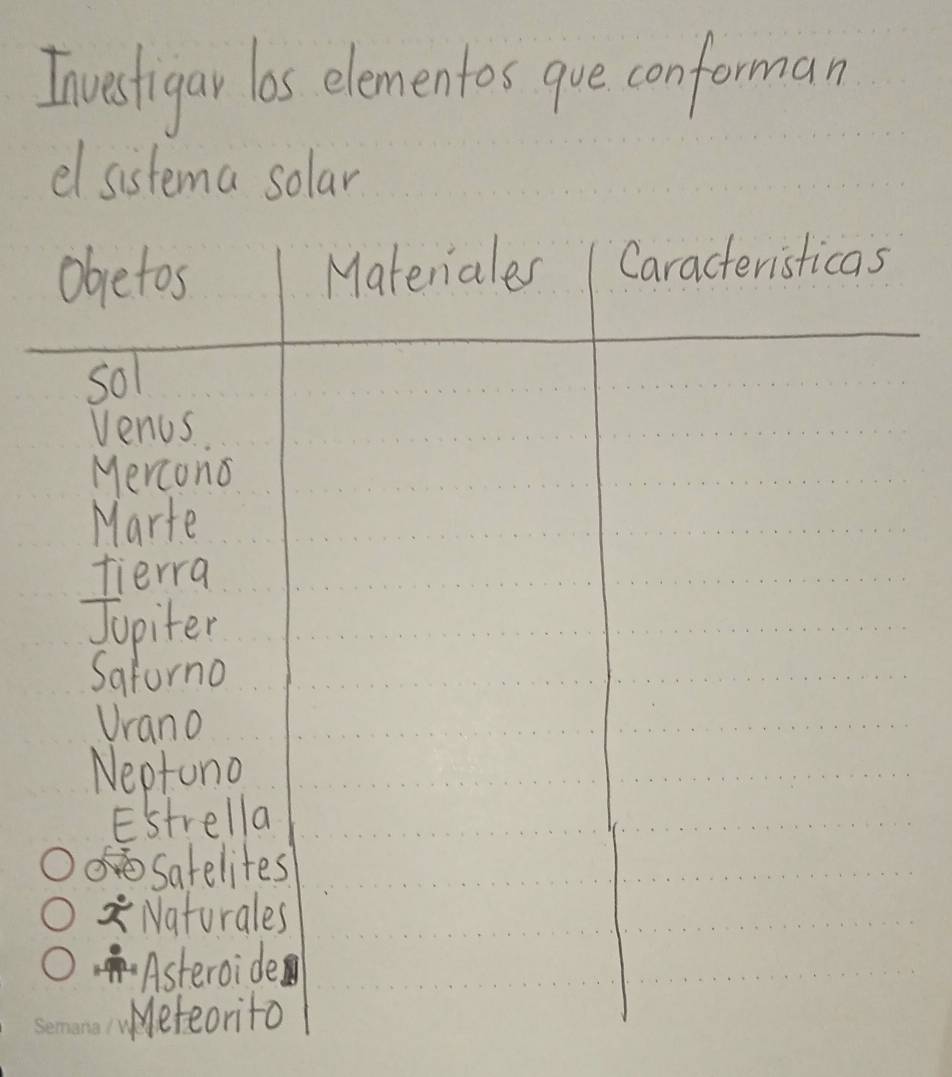 Investigar los elementos que conforman
el sistema solar
Objetos Materiales Caracteristicas
Sol
Venus.
Mercorio
Marte
Tierra
Jupiter
Saturno
Urano
Neptuno
Estrella
Satelites
Naturales
Asteroides
Semana / Meteorito